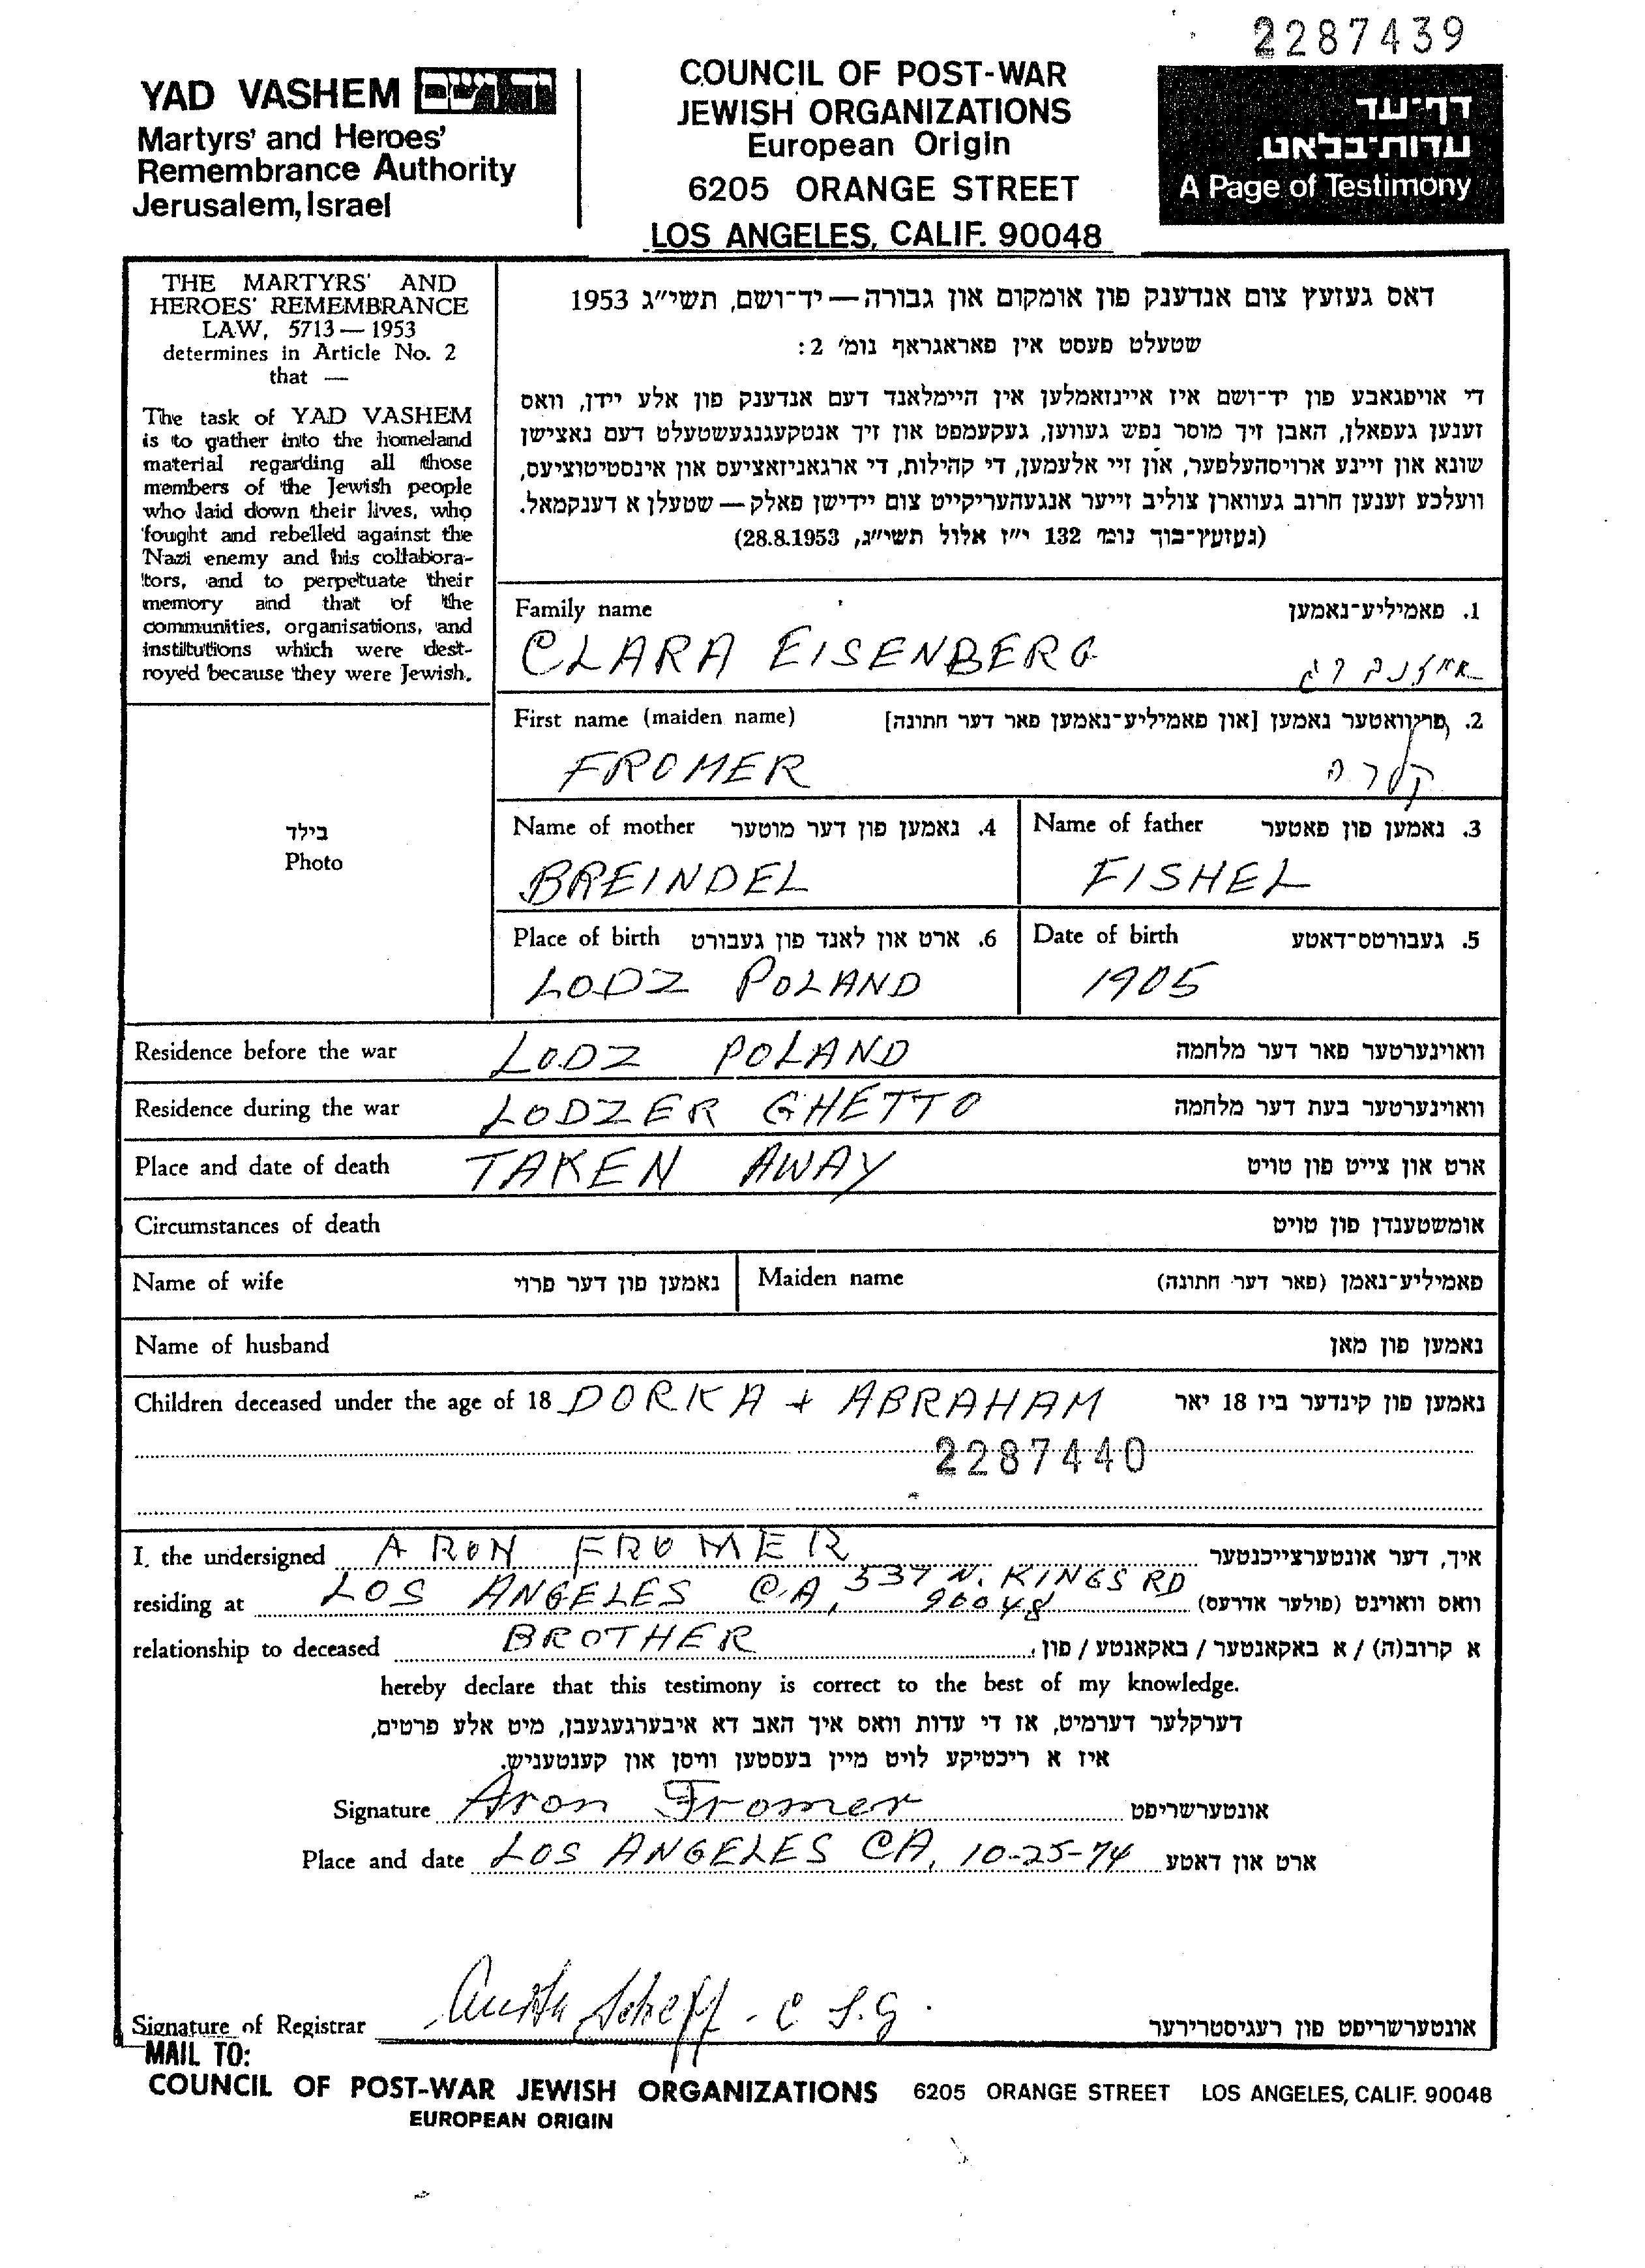 2287439
YAD VASHEM יד ושם
Martyrs' and Heroes'
Remembrance Authority
Jerusalem, Israel
COUNCIL OF POST-WAR
JEWISH ORGANIZATIONS
European Origin
6205 ORANGE STREET
LOS ANGELES, CALIF. 90048
דף־עד
עדות־בלאט
A Page of Testimony
THE MARTYRS' AND
HEROES' REMEMBRANCE
LAW, 5713—1953
determines in Article No. 2
that —
The task of YAD VASHEM
is to gather into the homeland
material regarding all those
members of the Jewish people
who laid down their lives, who
fought and rebelled against the
Nazi enemy and his collabora-
tors, and to perpetuate their
memory and that of the
communities, organisations, and
institutions which were dest-
royed because they were Jewish.
דאס געזעץ צום אנדענק פון אומקום און גבורה — יד־ושם, תשי״ג 1953
שטעלט פעסט אין פאראגראף נומ׳ 2:
די אויפגאבע פון יד־ושם איז איינזאמלען אין היימלאנד דעם אנדענק פון אלע יידן, וואס
זענען געפאלן, האבן זיך מוסר נפש געווען, געקעמפט און זיך אנטקעגנגעשטעלט דעם נאצישן
שונא און זיינע ארויסהעלפער, און זיי אלעמען, די קהילות, די ארגאניזאציעס און אינסטיטוציעס,
וועלכע זענען חרוב געווארן צוליב זייער אנגעהעריקייט צום יידישן פאלק — שטעלן א דענקמאל.
(געזעץ־בוך נומ׳ 132 י״ז אלול תשי״ג, 28.8.1953)
Family name 1. פאמיליע־נאמען
CLARA EISENBERG אייזנברג
First name (maiden name) 2. פריוואטער נאמען [און פאמיליע־נאמען פאר דער חתונה]
FROMER קלרה
בילד
Photo
Name of mother 4. נאמען פון דער מוטער Name of father 3. נאמען פון פאטער
BREINDEL FISHEL
Place of birth 6. ארט און לאנד פון געבורט Date of birth 5. געבורטס־דאטע
LODZ POLAND 1905
Residence before the war LODZ POLAND וואוינערטער פאר דער מלחמה
Residence during the war LODZER GHETTO וואוינערטער בעת דער מלחמה
Place and date of death TAKEN AWAY ארט און צייט פון טויט
Circumstances of death אומשטענדן פון טויט
Name of wife נאמען פון דער פרוי Maiden name פאמיליע־נאמן (פאר דער חתונה)
Name of husband נאמען פון מאן
Children deceased under the age of 18 DORKA + ABRAHAM נאמען פון קינדער ביז 18 יאר
2287440
I, the undersigned ARON FROMER איך, דער אונטערצייכנטער
residing at LOS ANGELES CA, 537 N. KINGS RD 90048 וואס וואוינט (פולער אדרעס)
relationship to deceased BROTHER א קרוב(ה) / א באקאנטער / באקאנטע / פון
hereby declare that this testimony is correct to the best of my knowledge.
דערקלער דערמיט, אז די עדות וואס איך האב דא איבערגעגעבן, מיט אלע פרטים,
איז א ריכטיקע לויט מיין בעסטען וויסן און קענטעניש.
Signature Aron Fromer אונטערשריפט
Place and date LOS ANGELES CA, 10-25-74 ארט און דאטע
Signature of Registrar אונטערשריפט פון רעגיסטרירער
MAIL TO:
COUNCIL OF POST-WAR JEWISH ORGANIZATIONS 6205 ORANGE STREET LOS ANGELES, CALIF. 90048
EUROPEAN ORIGIN